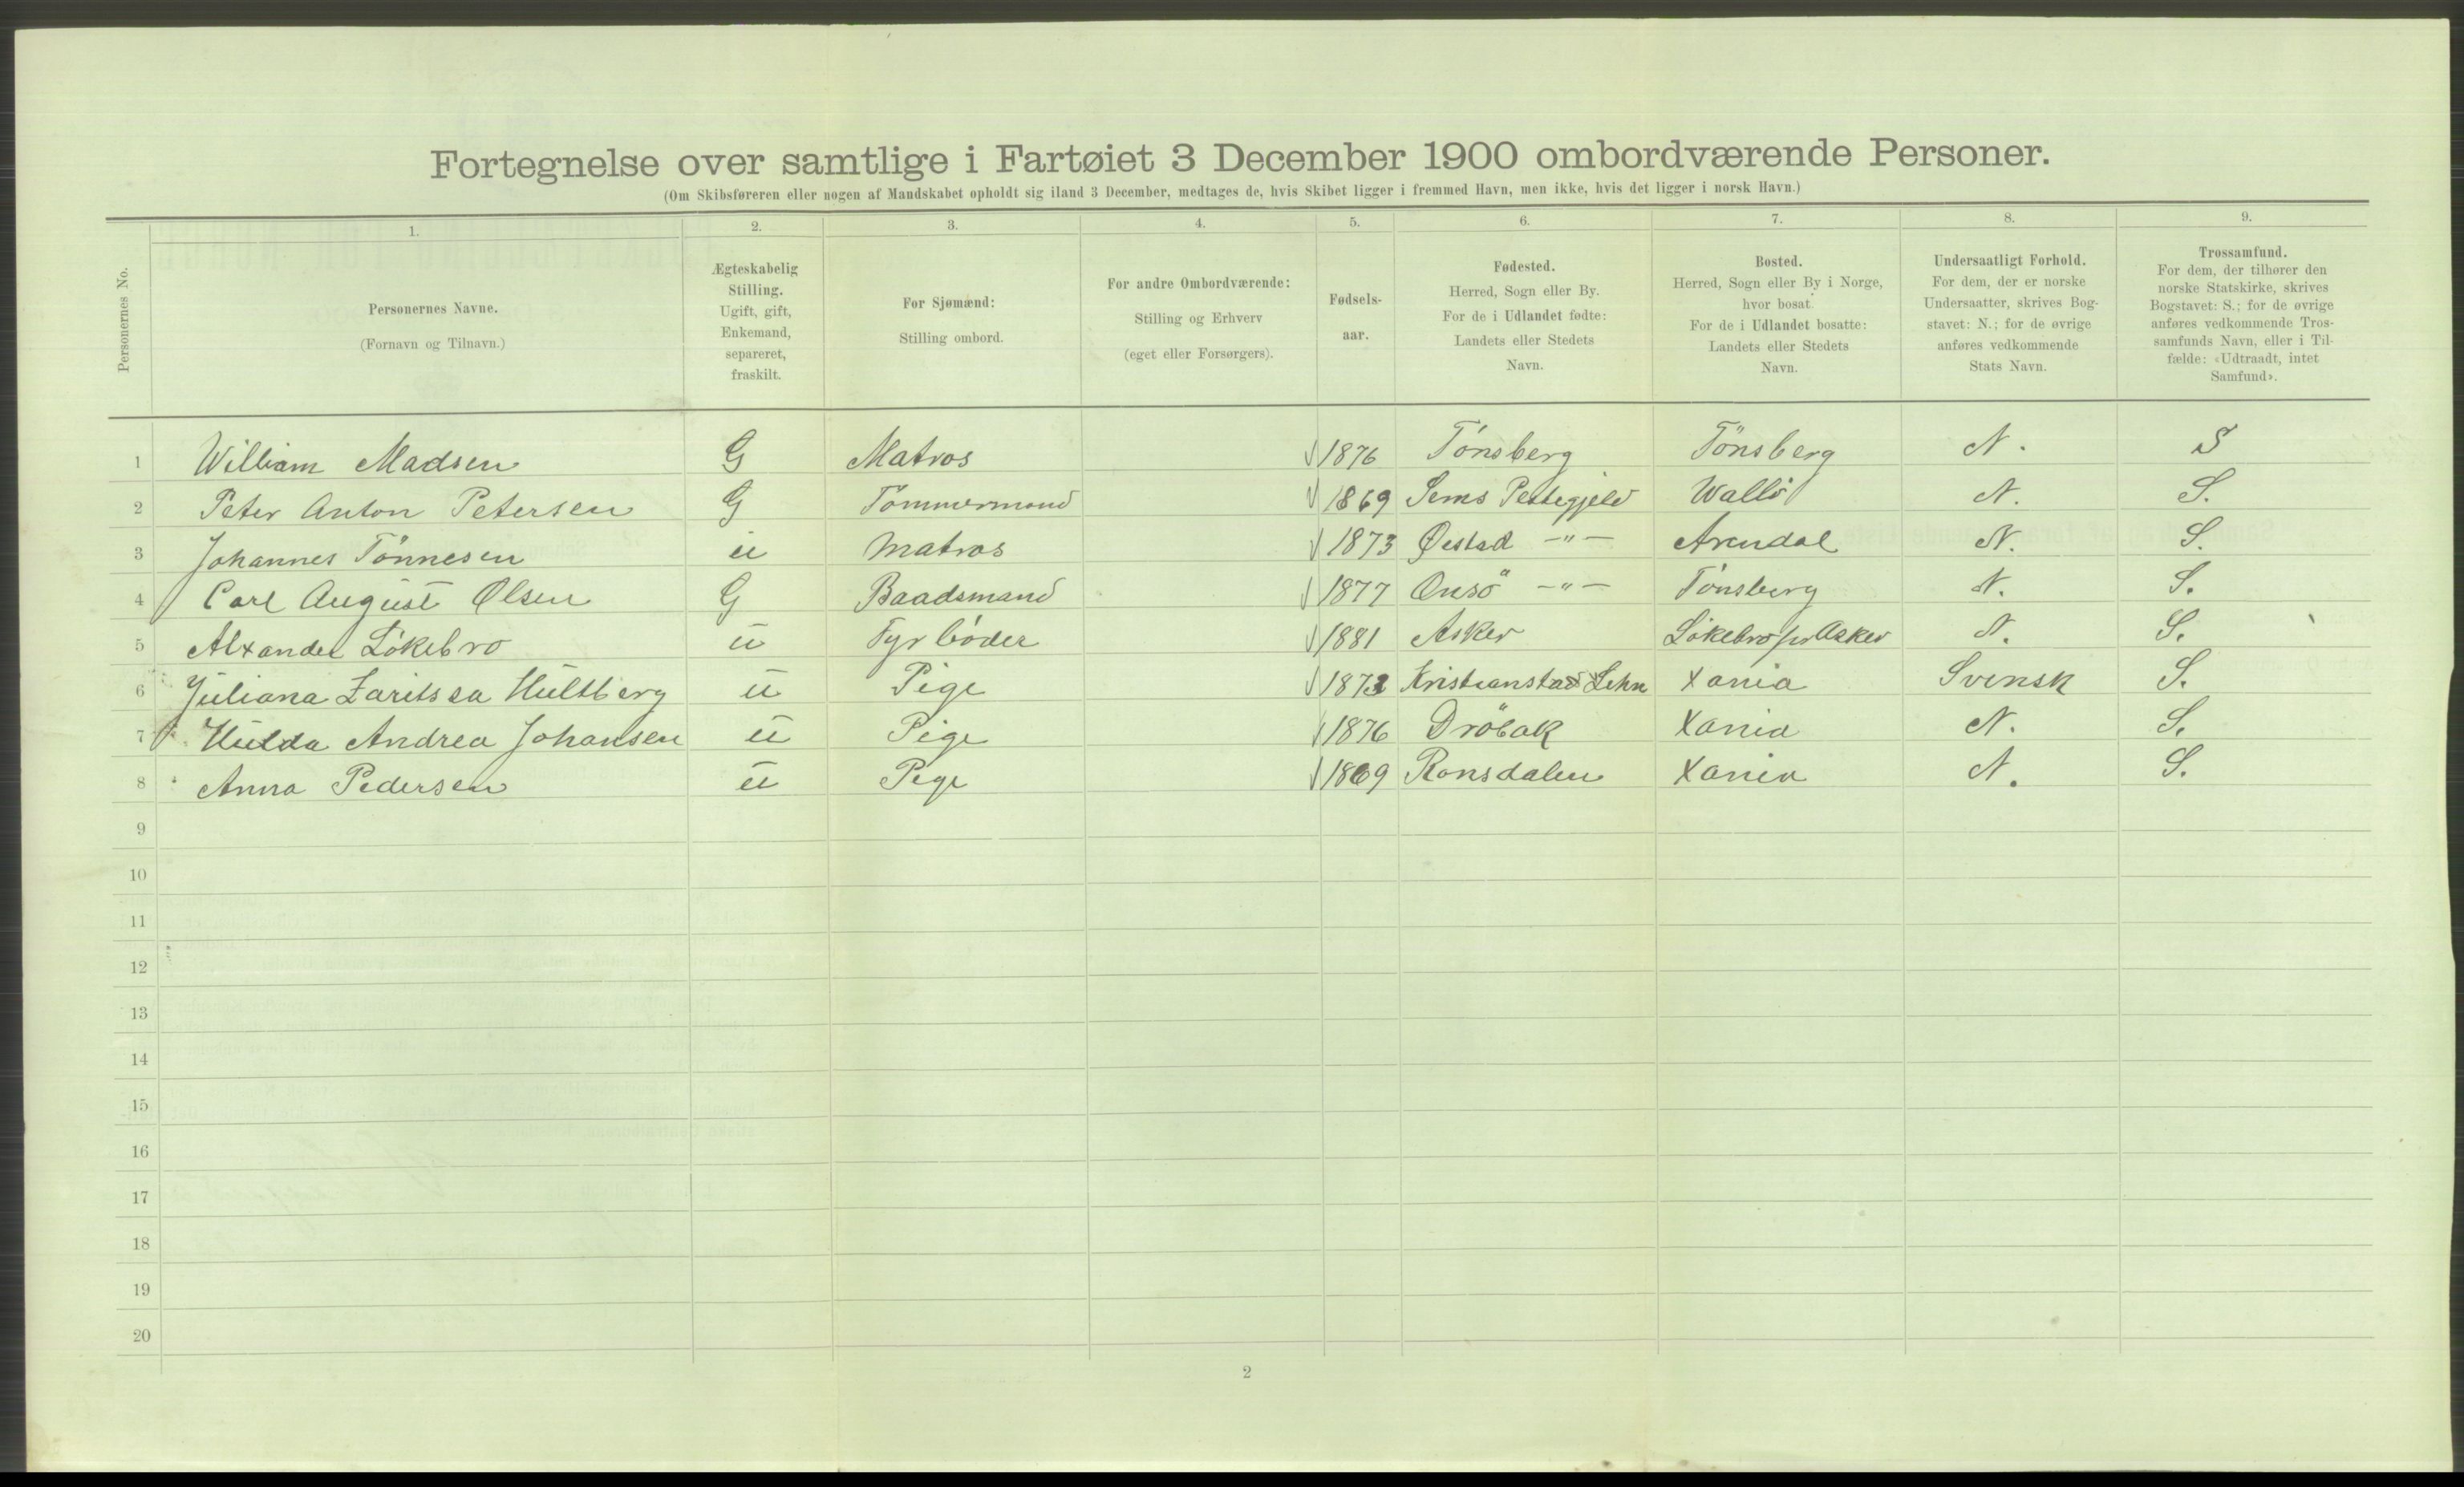 Fortegnelse over samtlige i Fartøiet 3 December 1900 ombordværende Personer.
(Om Skibsføreren eller nogen af Mandskabet opholdt sig iland 3 December, medtages de, hvis Skibet ligger i fremmed Havn, men ikke, hvis det ligger i norsk Havn.)
Personernes No.
1. 2. 3. 4. 5. 6. 7. 8. 9.
Personernes Navne.
(Fornavn og Tilnavn.)
Ægteskabelig
Stilling.
Ugift, gift,
Enkemand,
separeret,
fraskilt.
For Sjømænd:
Stilling ombord.
For andre Ombordværende:
Stilling og Erhverv
(eget eller Forsørgers).
Fødsels-
aar.
Fødested.
Herred, Sogn eller By.
For de i Udlandet fødte:
Landets eller Stedets
Navn.
Bosted.
Herred, Sogn eller By i Norge,
hvor bosat.
For de i Udlandet bosatte:
Landets eller Stedets
Navn.
Undersaatligt Forhold.
For dem, der er norske
Undersaatter, skrives Bog-
stavet: N.; for de øvrige
anføres vedkommende
Stats Navn.
Trossamfund.
For dem, der tilhører den
norske Statskirke, skrives
Bogstavet: S.; for de øvrige
anføres vedkommende Tros-
samfunds Navn, eller i Til-
fælde: «Udtraadt, intet
Samfund».
1 William Madsen G Matros 1876 Tönsberg Tönsberg N. S
2 Peter Anton Petersen G Tömmermand 1869 Sems Wallö N. S.
3 Johannes Tönnesen u Matros 1873 Øestad -"- Arendal N. S.
4 Carl August Olsen G Baadsmand 1877 Onsö -"- Tönsberg N. S.
5 Alxander Lökebro u Fyrböder 1881 Asker Lökebro pr Asker N. S.
6 Juliana Laritssa Hultberg u Pige 1872 Kristianstad Lehn Xania Svensk S.
7 Hulda Andrea Johansen u Pige 1876 Dröbak Xania N. S.
8 Anna Pedersen u Pige 1869 Ronsdalen Xania N. S.
9
10
11
12
13
14
15
16
17
18
19
20
2